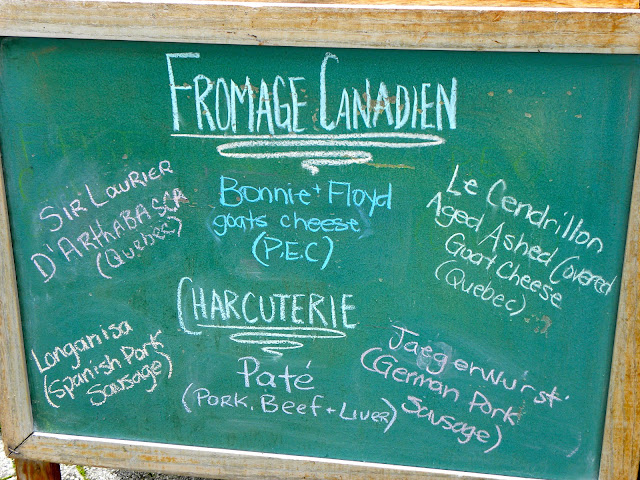 FROMAGE CANADIEN
SIR LAURIER
D'ARTHABASCA
(Quebec)
Bonnie + Floyd
goats cheese
(P.E.C)
Le Cendrillon
Aged Ashed Covered
Goat Cheese
(Quebec)
CHARCUTERIE
Longanisa
(Spanish Pork
Sausage)
Paté
(PORK, Beef + Liver)
Jaegerwurst
(German Pork
Sausage)